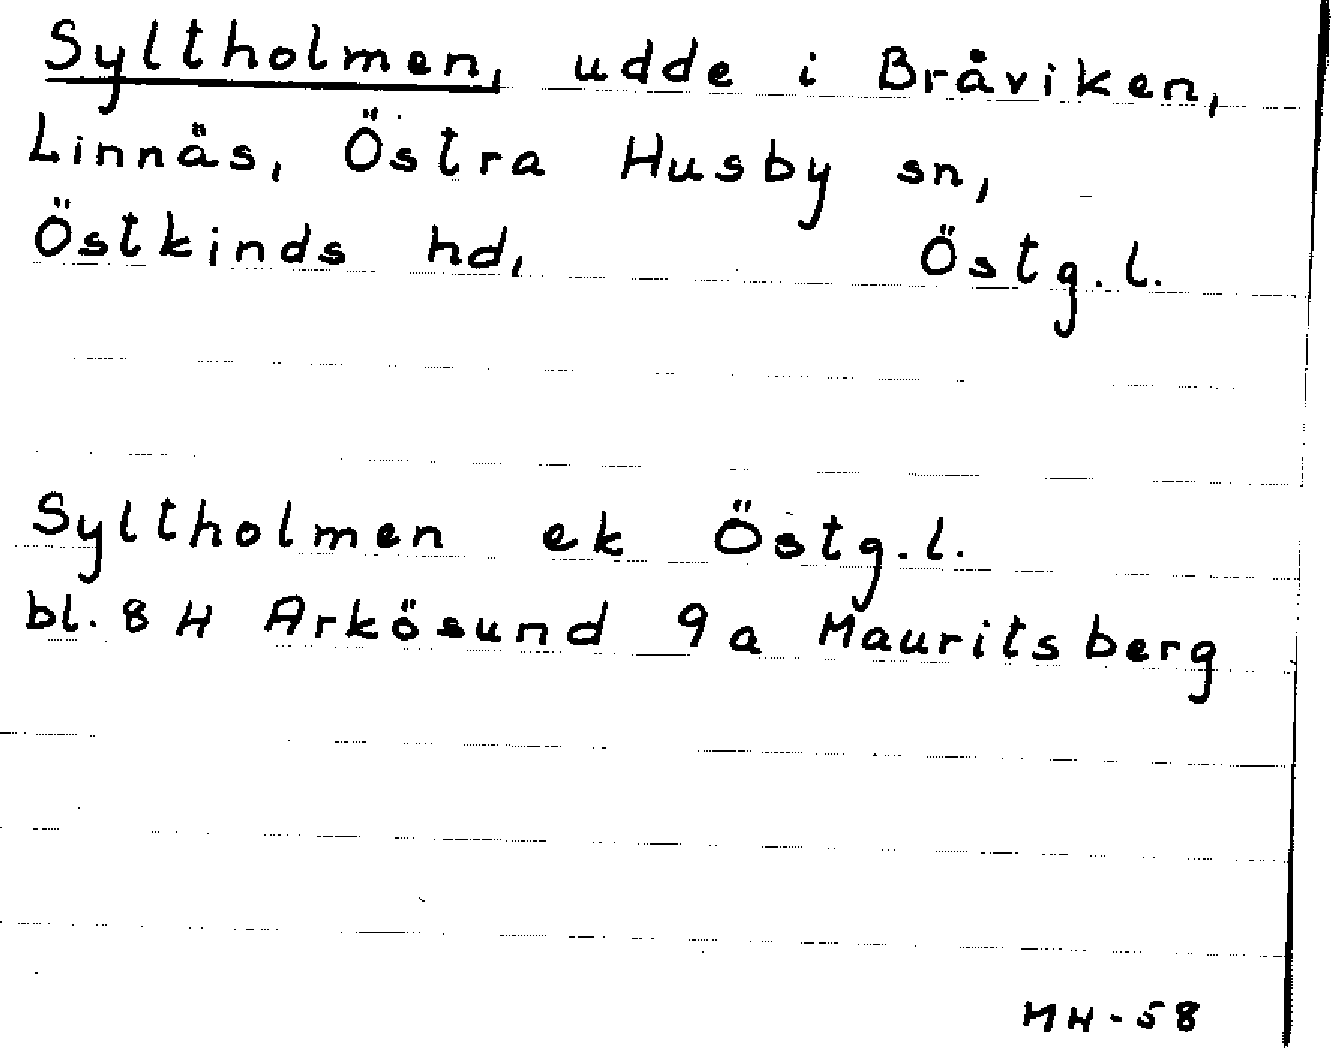 Syltholmen, udde i Bråviken,
Linnäs, Östra Husby sn,
Östkinds hd, Östg.l.
Syltholmen ek Östg.l.
bl. 8 H Arkösund 9a Mauritsberg
MH-58